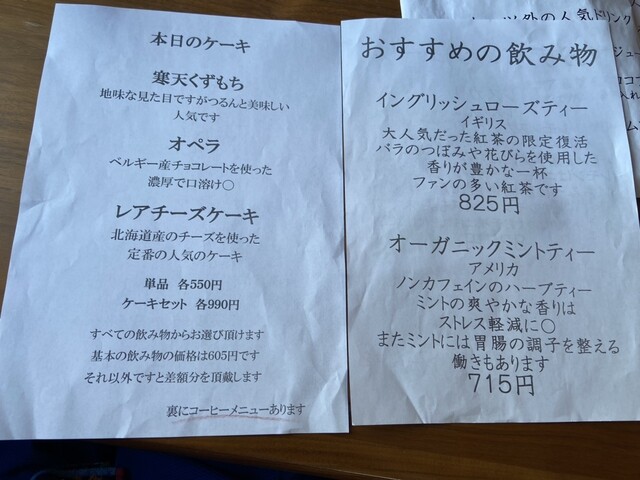 本日のケーキ
寒天くずもち
地味な見た目ですがつるんと美味しい
人気です
オペラ
ベルギー産チョコレートを使った
濃厚で口溶け〇
レアチーズケーキ
北海道産のチーズを使った
定番の人気のケーキ
単品 各550円
ケーキセット 各990円
すべての飲み物からお選び頂けます
基本の飲み物の価格は605円です
それ以外ですと差額分を頂戴します
裏にコーヒーメニューあります
おすすめの飲み物
イングリッシュローズティー
イギリス
大人気だった紅茶の限定復活
バラのつぼみや花びらを使用した
香りが豊かな一杯
ファンの多い紅茶です
825円
オーガニックミントティー
アメリカ
ノンカフェインのハーブティー
ミントの爽やかな香りは
ストレス軽減に〇
またミントには胃腸の調子を整える
働きもあります
715円
以外の人気ドリンク